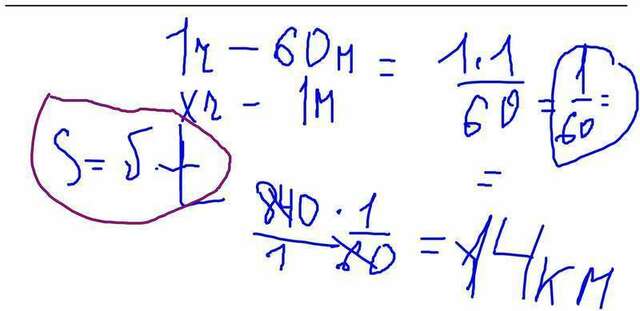 1ч – 60м = 1·1/60 = 1/60 =
xч – 1м
S = V·t
=
840/1 · 1/60 = 14км